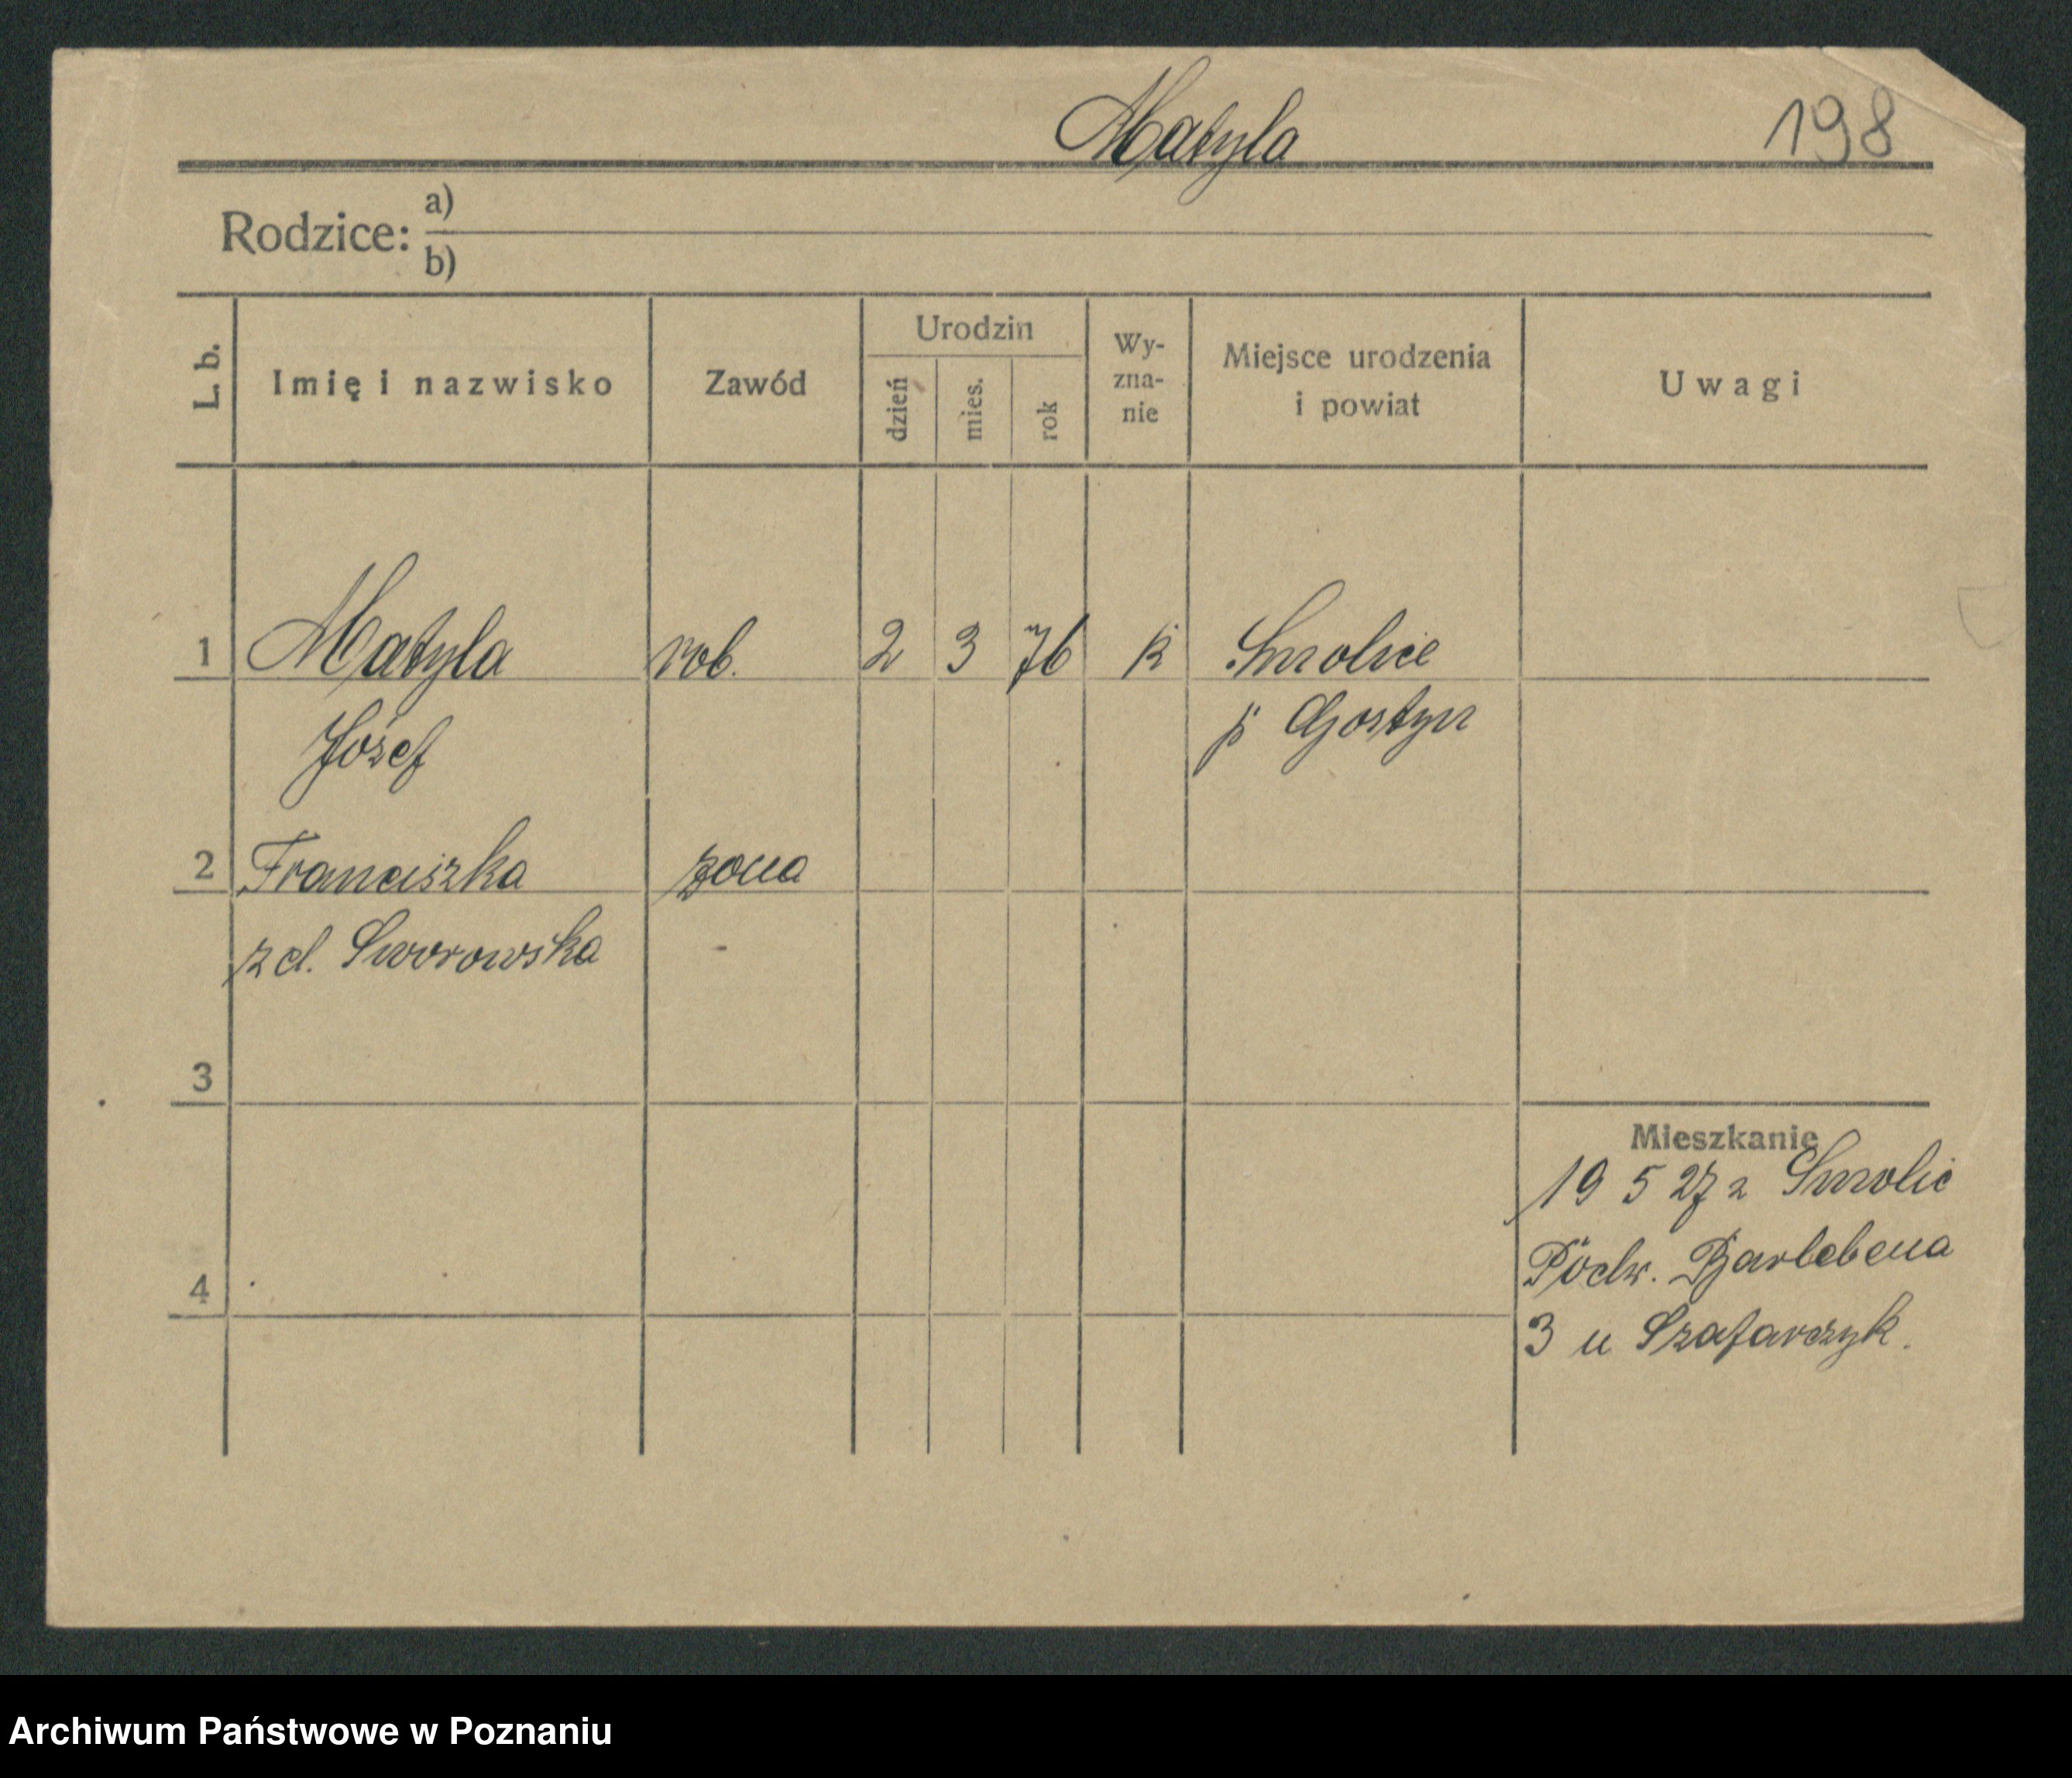 Matyla 198
Rodzice: a)
b)
L. b. Imię i nazwisko Zawód Urodzin dzień mies. rok Wy-zna-nie Miejsce urodzenia i powiat Uwagi
1 Matyla rob. 2 3 76 k Smolice
Józef p Gostyn
2 Franciszka żona
z d. Sworowska
3
Mieszkanie
19 5 27 z Smolic
4 Podw. Barlebena
3 u Szafarczyk.
Archiwum Państwowe w Poznaniu